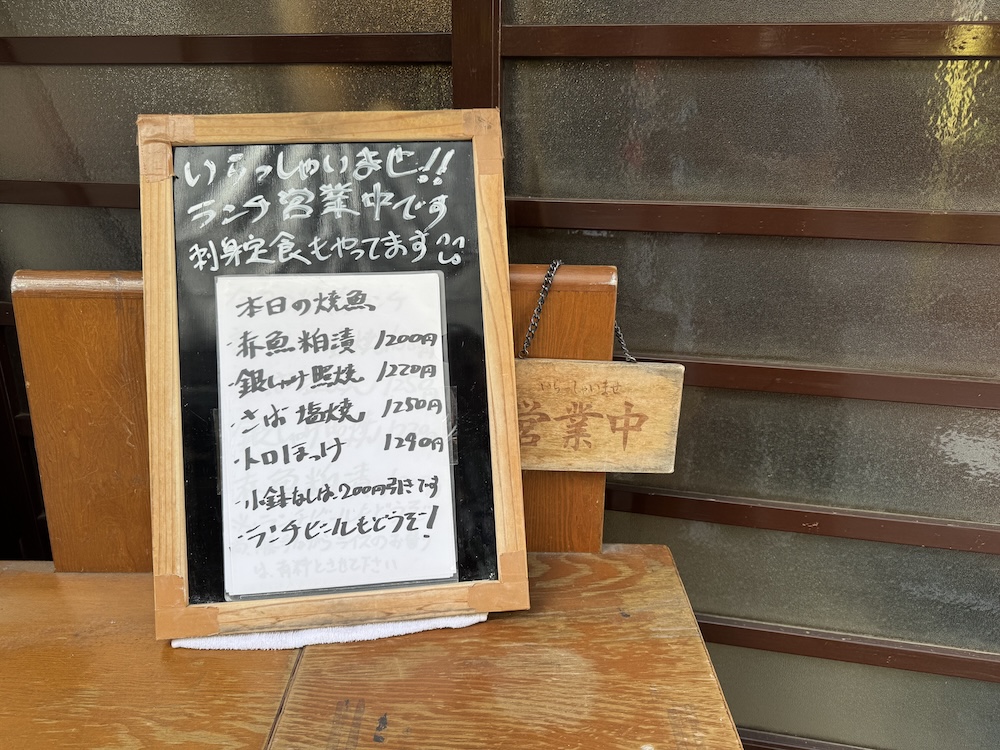 いらっしゃいませ!!
ランチ営業中です
刺身定食もやってます!!
本日の焼魚
・赤魚粕漬 1200円
・銀しゃけ照焼 1220円
・さば塩焼 1250円
・トロほっけ 1290円
・小鉢なしは、200円引きです
・ランチビールもどうぞ!
いらっしゃいませ
営業中